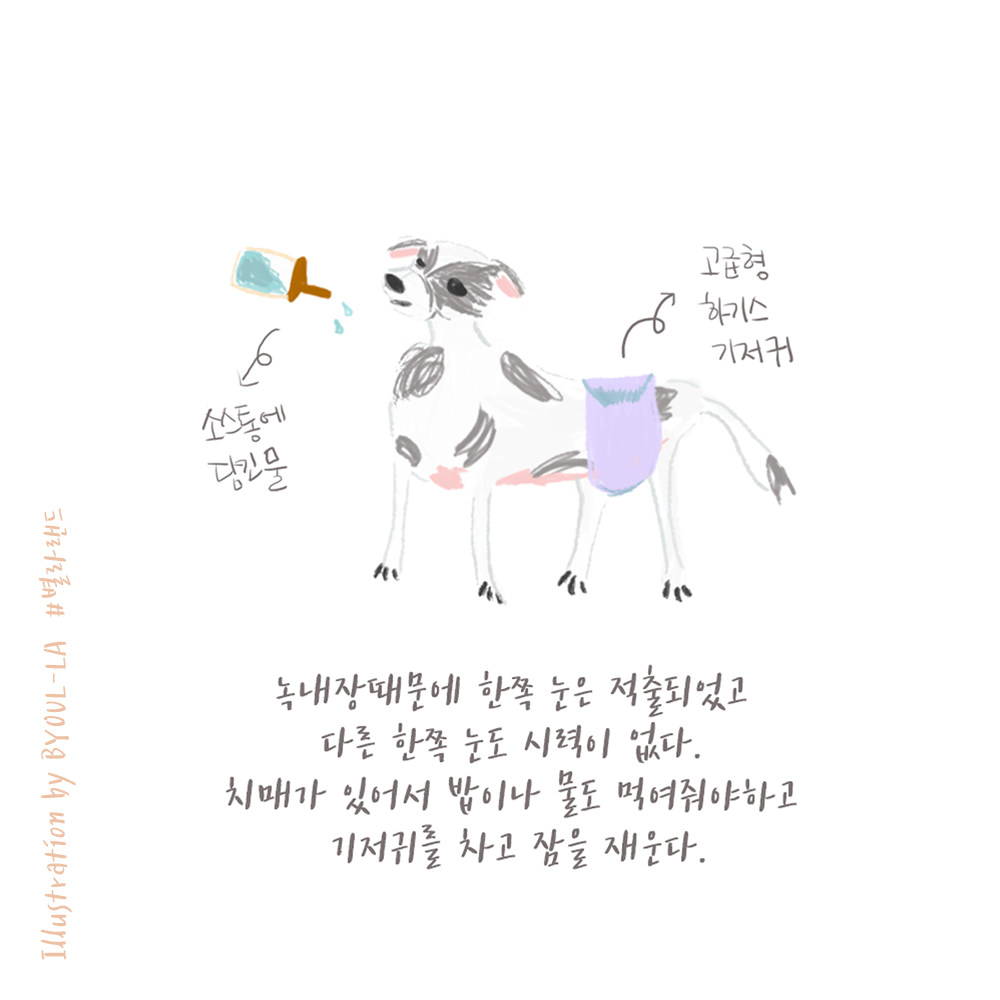 고급형
하기스
기저귀
소스통에
담긴 물
녹내장때문에 한쪽 눈은 적출되었고
다른 한쪽 눈도 시력이 없다.
치매가 있어서 밥이나 물도 먹여줘야하고
기저귀를 차고 잠을 재운다.
Illustration by BYOUL-LA #별라랜드